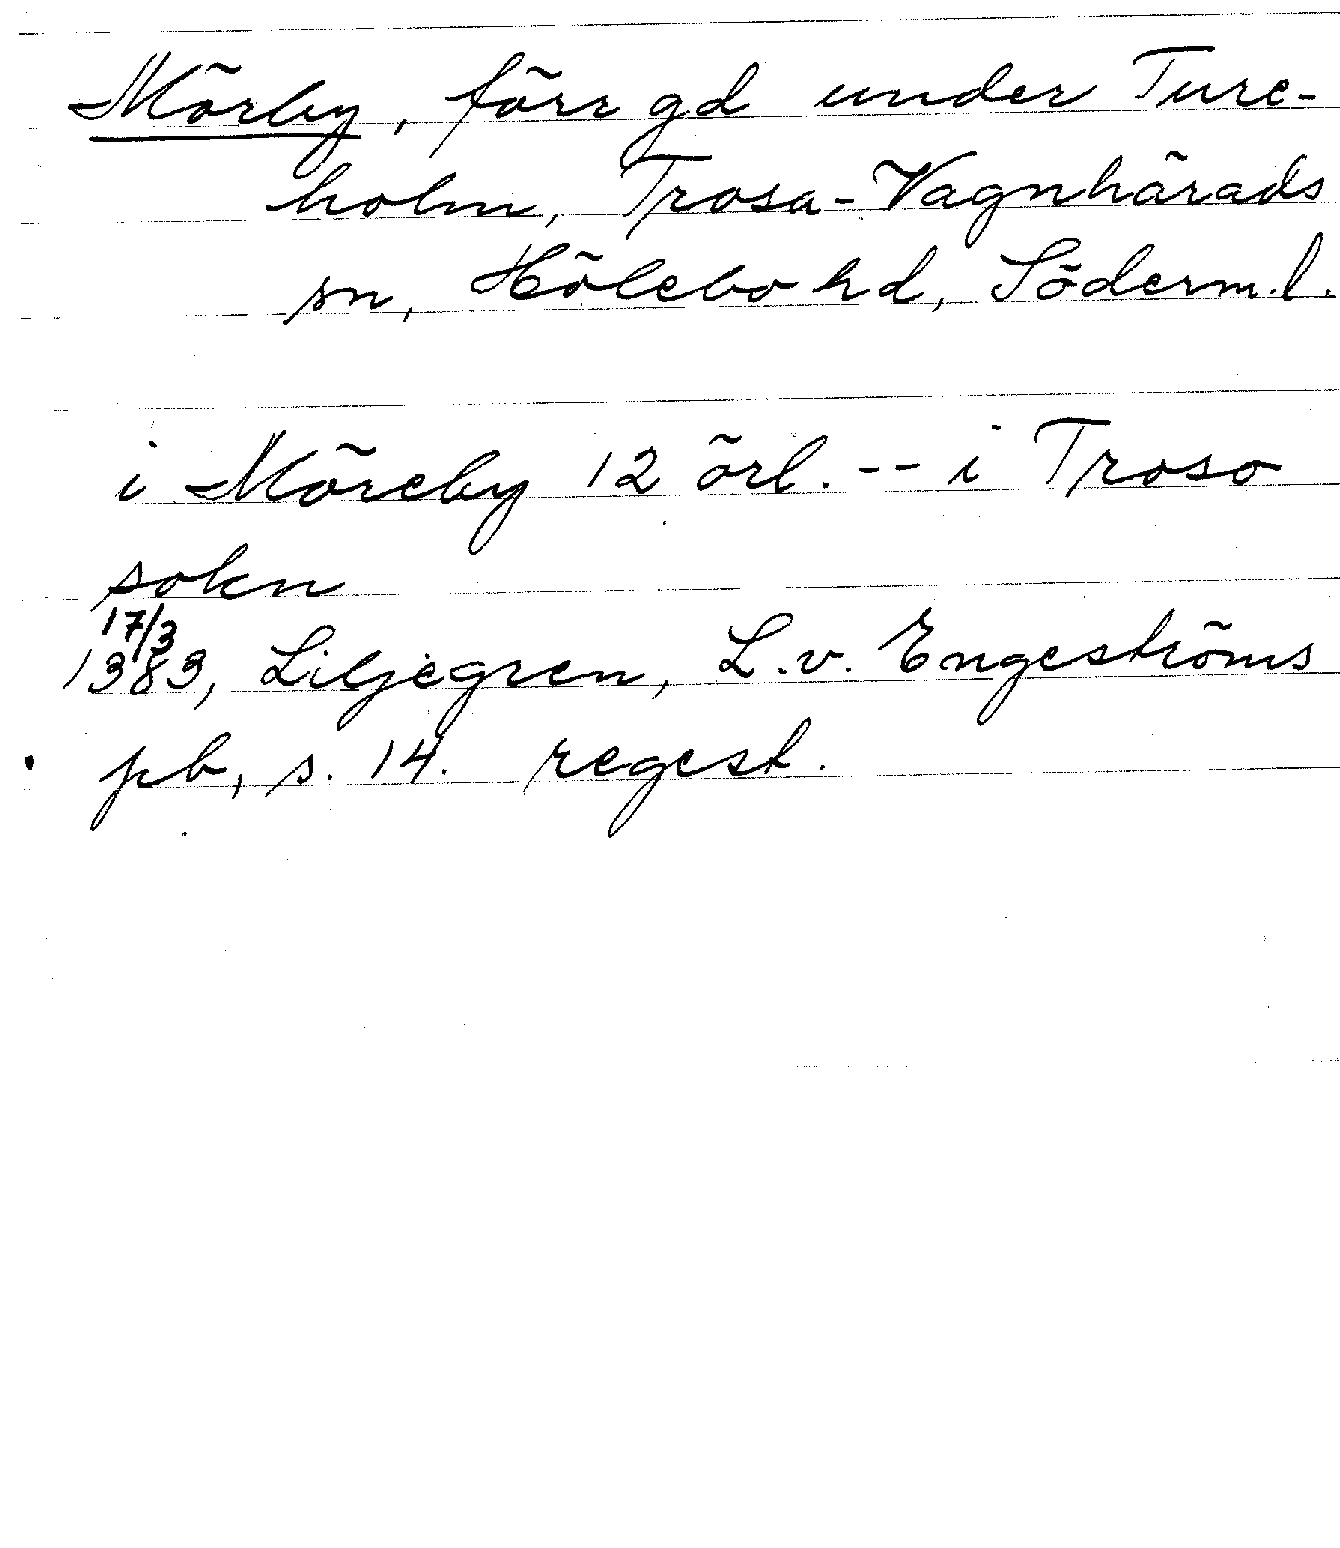 Mörby, förr gd under Ture-
holm, Trosa-Vagnhärads
sn, Hölebo hd, Söderm.l.
i Möreby 12 örl. -- i Troso
sokn
17/3
1383, Liljegren, L.v. Engeströms
pb, s. 14. regest.